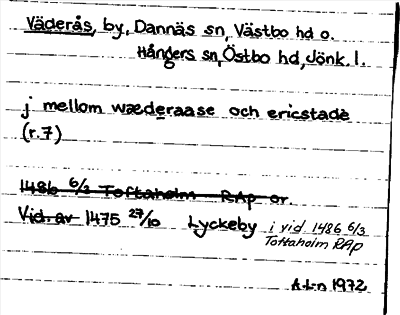 Väderås, by, Dannäs sn, Västbo hd o.
Hångers sn, Östbo hd, Jönk. l.
j mellom wæderaase och ericstade
(r.7)
1486 6/3 Toftaholm RAp or.
Vid. av 1475 27/10 Lyckeby i vid 1486 6/3
Toftaholm RAp
A L-n 1972